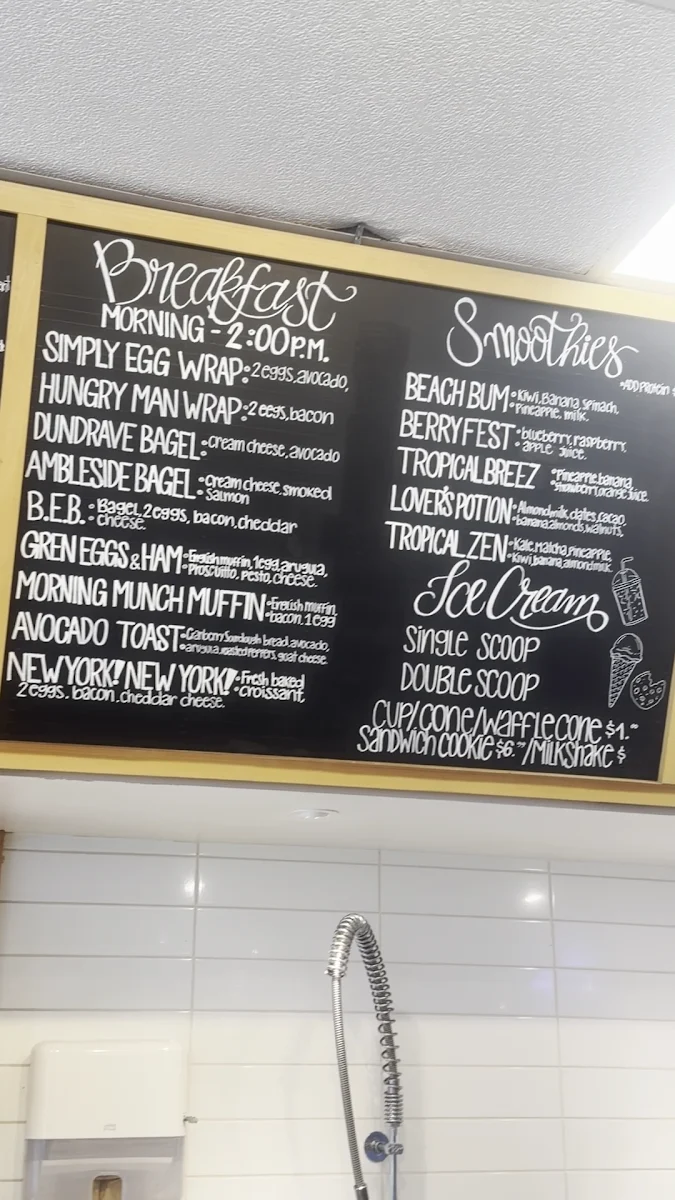 Breakfast
MORNING - 2:00P.M.
SIMPLY EGG WRAP: 2 eggs, avocado,
HUNGRY MAN WRAP: 2 eggs, bacon
DUNDRAVE BAGEL: cream cheese, avocado
AMBLESIDE BAGEL: cream cheese, smoked
Salmon
B.E.B.: Bagel, 2 eggs, bacon, cheddar
cheese.
GREN EGGS & HAM: English muffin, 1 egg, arugula,
Prosciutto, pesto, cheese.
MORNING MUNCH MUFFIN: English muffin,
bacon, 1 egg
AVOCADO TOAST: Sourdough bread, avocado,
arugula, roasted peppers, goat cheese.
NEW YORK! NEW YORK!: Fresh baked
croissant
2 eggs. bacon. cheddar cheese.
Smoothies
*ADD PROTEIN $
BEACH BUM: Kiwi, Banana, Spinach,
Pineapple, milk.
BERRY FEST: blueberry, raspberry,
apple juice.
TROPICAL BREEZ: Pineapple, banana,
strawberry, orange juice.
LOVER'S POTION: Almond milk, dates, cacao,
banana, almonds, walnuts,
TROPICAL ZEN: Kale, Matcha, Pineapple,
Kiwi, banana, almond milk.
Ice Cream
Single SCOOP
DOUBLE SCOOP
CUP/CONE/Waffle cone $1.
Sandwich cookie $6. /Milkshake $